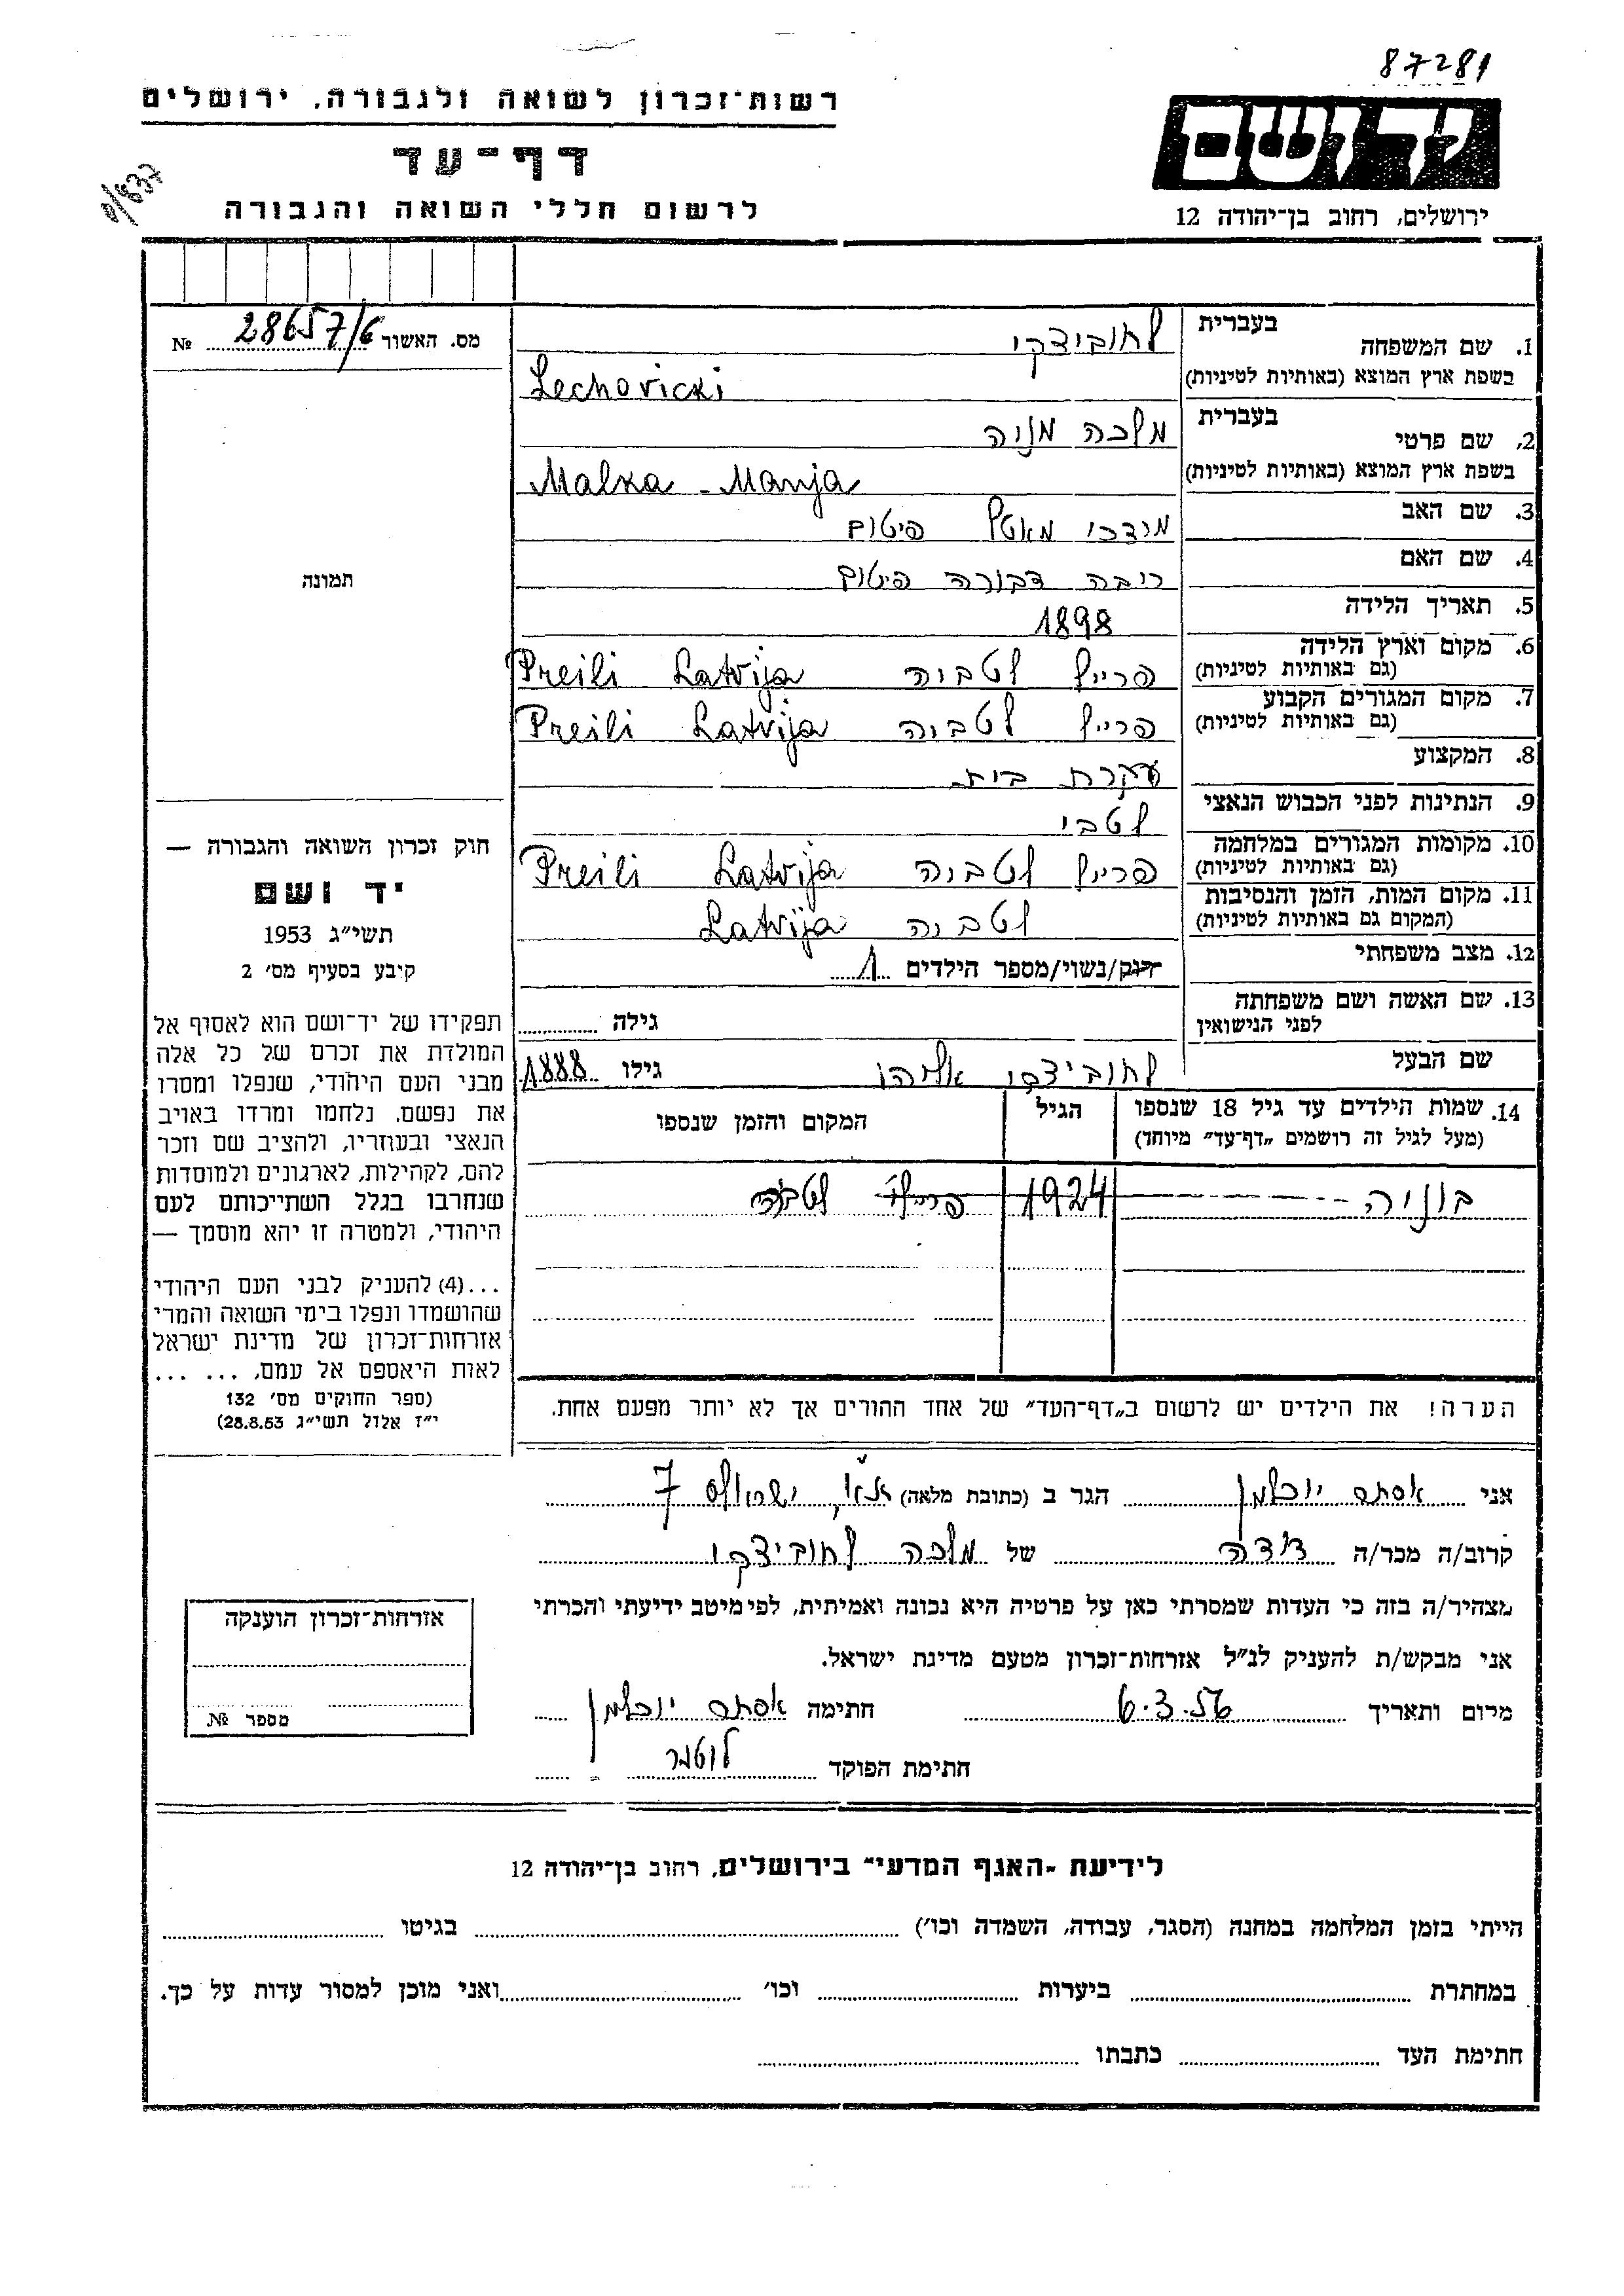 87281
יד ושם
ירושלים, רחוב בן־יהודה 12
רשות־זכרון לשואה ולגבורה, ירושלים
דף־עד
לרשום חללי השואה והגבורה
מס. האשור № 28657/6
1. שם המשפחה בעברית לחוביצקי
בשפת ארץ המוצא (באותיות לטיניות) Lechovicki
2. שם פרטי בעברית מלכה מניה
בשפת ארץ המוצא (באותיות לטיניות) Malka - Manja
3. שם האב מרדכי מאטל פיטום
4. שם האם ריבה דבורה פיטום
5. תאריך הלידה 1898
6. מקום וארץ הלידה (גם באותיות לטיניות) פרייל לטביה Preili Latvija
7. מקום המגורים הקבוע (גם באותיות לטיניות) פרייל לטביה Preili Latvija
8. המקצוע עקרת בית
9. הנתינות לפני הכבוש הנאצי לטבי
10. מקומות המגורים במלחמה (גם באותיות לטיניות) פרייל לטביה Preili Latvija
11. מקום המות, הזמן והנסיבות (המקום גם באותיות לטיניות) לטביה Latvija
12. מצב משפחתי רווק/נשוי/מספר הילדים 1
13. שם האשה ושם משפחתה לפני הנישואין גילה
שם הבעל לחוביצקי אליהו גילו 1888
14. שמות הילדים עד גיל 18 שנספו (מעל לגיל זה רושמים „דף־עד" מיוחד) הגיל המקום והזמן שנספו
בוניה 1924 פרייל לטביה
הערה! את הילדים יש לרשום ב„דף־העד" של אחד ההורים אך לא יותר מפעם אחת.
תמונה
חוק זכרון השואה והגבורה —
יד ושם
תשי"ג 1953
קיבע בסעיף מס׳ 2
תפקידו של יד־ושם הוא לאסוף אל
המולדת את זכרם של כל אלה
מבני העם היהודי, שנפלו ומסרו
את נפשם, נלחמו ומרדו באויב
הנאצי ובעוזריו, ולהציב שם וזכר
להם, לקהילות, לארגונים ולמוסדות
שנחרבו בגלל השתייכותם לעם
היהודי, ולמטרה זו יהא מוסמך —
...(4) להעניק לבני העם היהודי
שהושמדו ונפלו בימי השואה והמרי
אזרחות־זכרון של מדינת ישראל
לאות היאספם אל עמם, ... ...
(ספר החוקים מס׳ 132
י"ז אלול תשי"ג 28.8.53)
אני אסתר הגר ב (כתובת מלאה) 7
קרוב/ה מכר/ה דודה של מלכה לחוביצקי
מצהיר/ה בזה כי העדות שמסרתי כאן על פרטיה היא נכונה ואמיתית, לפי מיטב ידיעתי והכרתי
אני מבקש/ת להעניק לנ"ל אזרחות־זכרון מטעם מדינת ישראל.
מקום ותאריך 6.3.56 חתימה אסתר
חתימת הפוקד
אזרחות־זכרון הוענקה
מספר №
לידיעת "האגף המדעי" בירושלים, רחוב בן־יהודה 12
הייתי בזמן המלחמה במחנה (הסגר, עבודה, השמדה וכו׳) בגיטו
במחתרת ביערות וכו׳ ואני מוכן למסור עדות על כך.
חתימת העד כתבתו